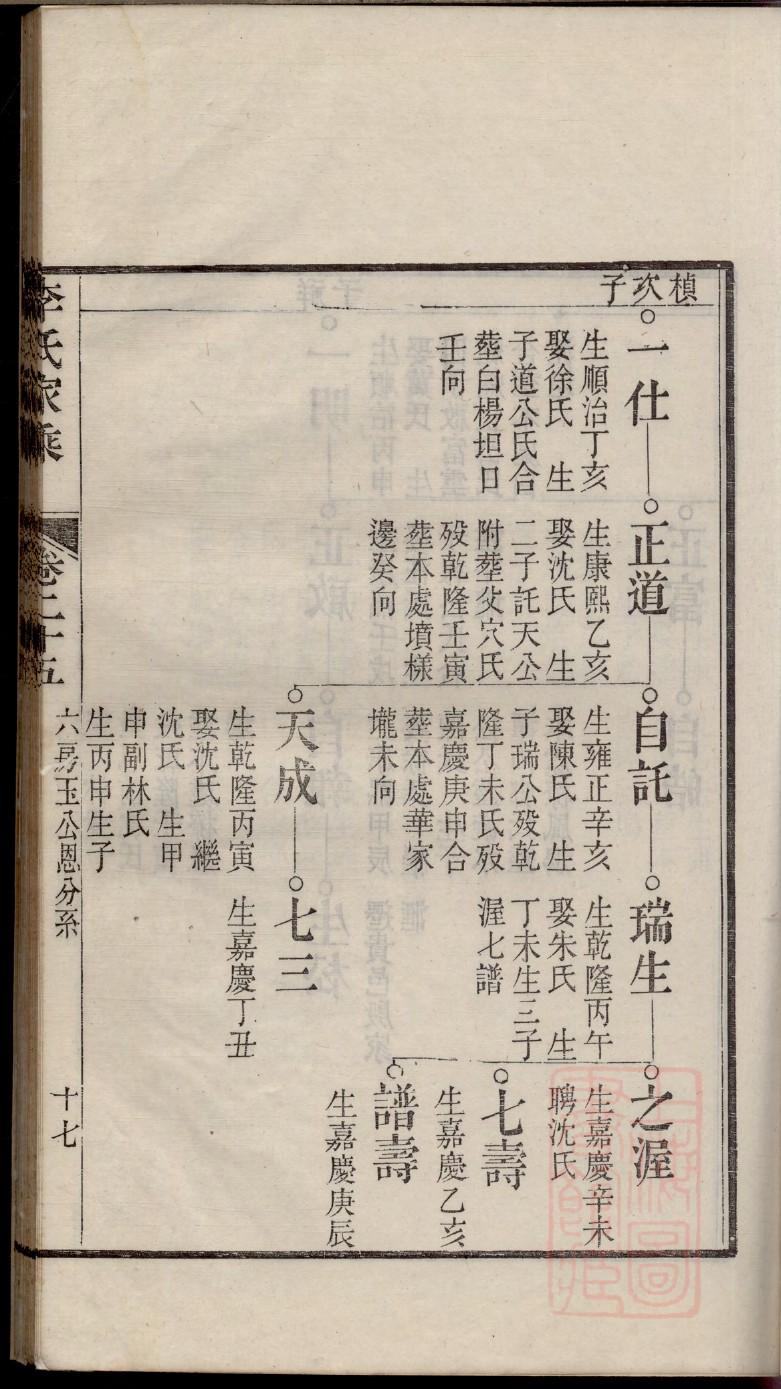 楨次子
一仕
生順治丁亥
娶徐氏　生
子道公氏合
塟白楊坦口
壬向
正道
生康熙乙亥
娶沈氏　生
二子託天公
附塟父穴氏
殁乾隆壬寅
塟本處墳樣
邊癸向
自託
生雍正辛亥
娶陳氏　生
子瑞公殁乾
隆丁未氏殁
嘉慶庚申合
塟本處華家
壠未向
瑞生
生乾隆丙午
娶朱氏　生
丁未生三子
渥七譜
之渥
生嘉慶辛未
聘沈氏
七壽
生嘉慶乙亥
譜壽
生嘉慶庚辰
天成
生乾隆丙寅
娶沈氏　繼
沈氏　生甲
申副林氏
生丙申生子
七三
生嘉慶丁丑
六房玉公恩分系
十七
李氏家乘
卷二十五